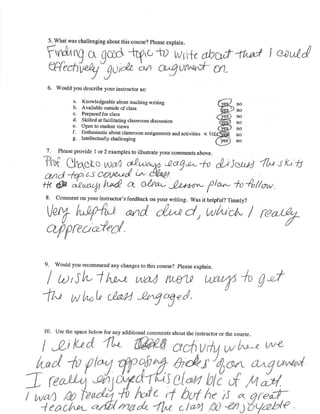 5. What was challenging about this course? Please explain.
Finding a good topic to write about that I could
effectively guide an argument on.
6. Would you describe your instructor as:
a. Knowledgeable about teaching writing yes no
b. Available outside of class yes no
c. Prepared for class yes no
d. Skilled at facilitating classroom discussion yes no
e. Open to student views yes no
f. Enthusiastic about classroom assignments and activities yes no
g. Intellectually challenging yes no
7. Please provide 1 or 2 examples to illustrate your comments above.
Prof Chacko was always eager to discuss the skits
and topics covered in class
always had a clear lesson plan to follow.
8. Comment on your instructor's feedback on your writing. Was it helpful? Timely?
Very helpful and direct, which I really
appreciated.
9. Would you recommend any changes to this course? Please explain.
I wish there was more ways to get
the whole class engaged.
10. Use the space below for any additional comments about the instructor or the course.
I liked the activity where we
had to play opposing sides of an argument.
I really enjoyed this class b/c of Matt,
I was so ready to hate it but he is a great
teacher and made the class so enjoyable.